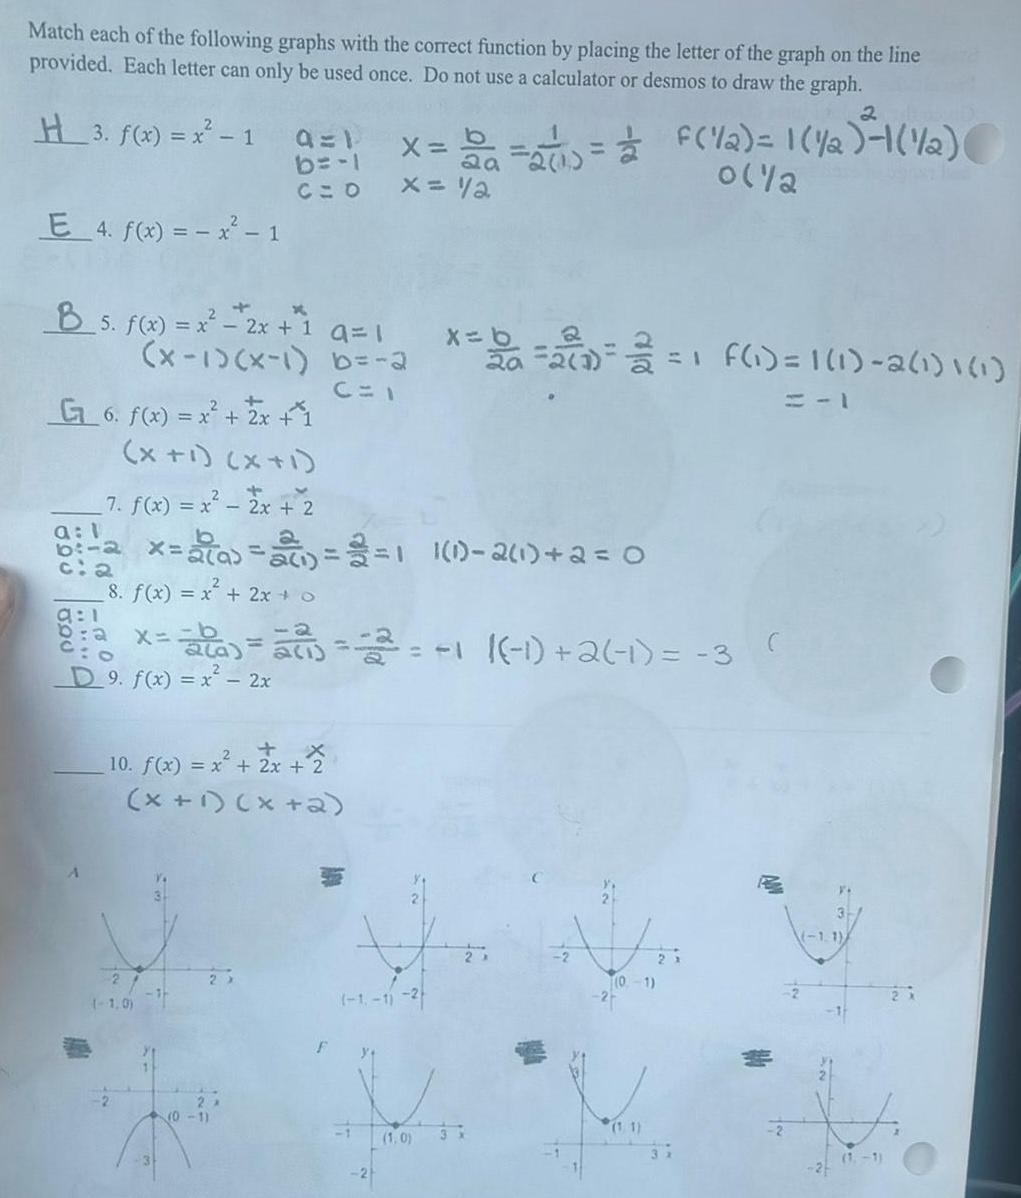 Match each of the following graphs with the correct function by placing the letter of the graph on the line
provided. Each letter can only be used once. Do not use a calculator or desmos to draw the graph.
H 3. f(x) = x² − 1 a=1 x = b/2a = 1/2(1) = 1/2 f(1/2)= 1(1/2)²-1(1/2)
b=-1 x = 1/2 0(1/2
c=0
E 4. f(x) = − x² − 1
+ x
B 5. f(x) = x² − 2x + 1 a=1 x=b/2a = 2/2(1) = 2/2 = 1 f(1)= 1(1)-2(1)1(1)
(x-1)(x-1) b=-2 = -1
c=1
+ x
G 6. f(x) = x² + 2x + 1
(x+1)(x+1)
+
7. f(x) = x² − 2x + 2
a:1
b:-2 x= b/2(a) = 2/2(1) = 2/2 = 1 1(1)-2(1)+2=0
c:2
8. f(x) = x² + 2x + 0
a:1
b:2 x= -b/2(a) = -2/2(1) = -2/2 = -1 1(-1)+2(-1)= -3 (
c:0
D 9. f(x) = x² − 2x
+ x
10. f(x) = x² + 2x + 2
(x+1)(x+2)
A y 3 -2 2 x -1 (-1, 0)
y 2 2 x (-1, -1) -2
C y 2 -2 2 x (0, -1) -2
y 3 (-1, 1) -2 2 x -1
y 1 -2 2 x (0, -1) -3
F y -1 (1, 0) 3 x -2
y 3 (1, 1) -1 3 x -1
y 2 -2 x (1, -1) -2